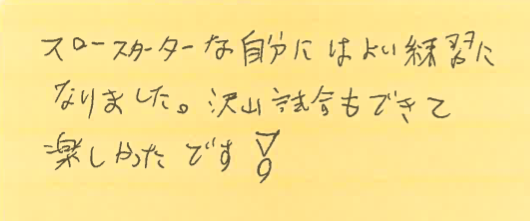 スロースターターな自分にはよい練習に
なりました。沢山試合もできて
楽しかったです!